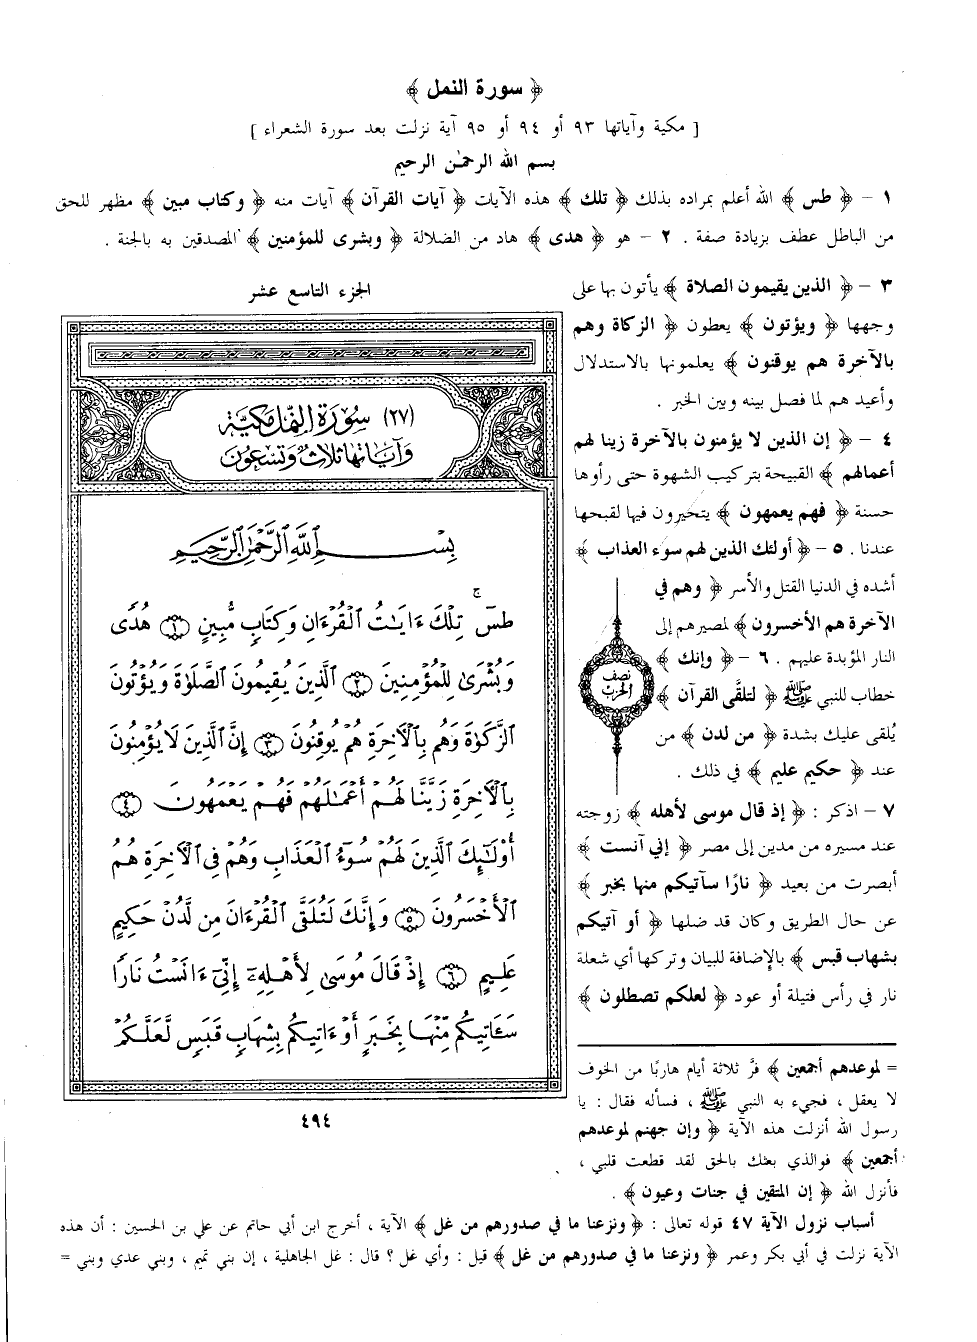 ﴿ سورة النمل ﴾
[ مكية وآياتها ٩٣ أو ٩٤ أو ٩٥ آية نزلت بعد سورة الشعراء ]
بسم الله الرحمٰن الرحيم
١ – ﴿ طس ﴾ الله أعلم بمراده بذلك ﴿ تلك ﴾ هذه الآيات ﴿ آيات القرآن ﴾ آيات منه ﴿ وكتاب مبين ﴾ مظهر للحق
من الباطل عطف بزيادة صفة . ٢ – هو ﴿ هدى ﴾ هاد من الضلالة ﴿ وبشرى للمؤمنين ﴾ المصدقين به بالجنة .
٣ – ﴿ الذين يقيمون الصلاة ﴾ يأتون بها على
وجهها ﴿ ويؤتون ﴾ يعطون ﴿ الزكاة وهم
بالآخرة هم يوقنون ﴾ يعلمونها بالاستدلال
وأعيد هم لما فصل بينه وبين الخبر .
٤ – ﴿ إن الذين لا يؤمنون بالآخرة زينا لهم
أعمالهم ﴾ القبيحة بتركيب الشهوة حتى رأوها
حسنة ﴿ فهم يعمهون ﴾ يتحيرون فيها لقبحها
عندنا . ٥ – ﴿ أولئك الذين لهم سوء العذاب ﴾
أشده في الدنيا القتل والأسر ﴿ وهم في
الآخرة هم الأخسرون ﴾ لمصيرهم إلى
النار المؤبدة عليهم . ٦ – ﴿ وإنك ﴾
خطاب للنبي ﷺ ﴿ لتلقَّى القرآن ﴾
يُلقى عليك بشدة ﴿ من لدن ﴾ من
عند ﴿ حكيم عليم ﴾ في ذلك .
٧ – اذكر : ﴿ إذ قال موسى لأهله ﴾ زوجته
عند مسيره من مدين إلى مصر ﴿ إني آنست ﴾
أبصرت من بعيد ﴿ نارًا سآتيكم منها بخبر ﴾
عن حال الطريق وكان قد ضلها ﴿ أو آتيكم
بشهاب قبس ﴾ بالإضافة للبيان وتركها أي شعلة
نار في رأس فتيلة أو عود ﴿ لعلكم تصطلون ﴾
الجزء التاسع عشر
(٢٧) سُورَةُ النَّمْلِ مَكِّيَّة
وَآيَاتُهَا ثَلَاثٌ وَتِسْعُونَ
بِسْمِ اللَّهِ الرَّحْمَٰنِ الرَّحِيمِ
طسٓ ۚ تِلْكَ ءَايَٰتُ ٱلْقُرْءَانِ وَكِتَابٍ مُّبِينٍ ﴿١﴾ هُدًى
وَبُشْرَىٰ لِلْمُؤْمِنِينَ ﴿٢﴾ ٱلَّذِينَ يُقِيمُونَ ٱلصَّلَوٰةَ وَيُؤْتُونَ
ٱلزَّكَوٰةَ وَهُم بِٱلْءَاخِرَةِ هُمْ يُوقِنُونَ ﴿٣﴾ إِنَّ ٱلَّذِينَ لَا يُؤْمِنُونَ
بِٱلْءَاخِرَةِ زَيَّنَّا لَهُمْ أَعْمَٰلَهُمْ فَهُمْ يَعْمَهُونَ ﴿٤﴾
أُو۟لَٰٓئِكَ ٱلَّذِينَ لَهُمْ سُوٓءُ ٱلْعَذَابِ وَهُمْ فِى ٱلْءَاخِرَةِ هُمُ
ٱلْأَخْسَرُونَ ﴿٥﴾ وَإِنَّكَ لَتُلَقَّى ٱلْقُرْءَانَ مِن لَّدُنْ حَكِيمٍ
عَلِيمٍ ﴿٦﴾ إِذْ قَالَ مُوسَىٰ لِأَهْلِهِۦٓ إِنِّىٓ ءَانَسْتُ نَارًا
سَـَٔاتِيكُم مِّنْهَا بِخَبَرٍ أَوْ ءَاتِيكُم بِشِهَابٍ قَبَسٍ لَّعَلَّكُمْ
نصف
الحزب
٤٩٤
= لموعدهم أجمعين ﴾ فرَّ ثلاثة أيام هاربًا من الخوف
لا يعقل ، فجيء به النبي ﷺ ، فسأله فقال : يا
رسول الله أنزلت هذه الآية ﴿ وإن جهنم لموعدهم
أجمعين ﴾ فوالذي بعثك بالحق لقد قطعت قلبي ،
فأنزل الله ﴿ إن المتقين في جنات وعيون ﴾ .
أسباب نزول الآية ٤٧ قوله تعالى : ﴿ ونزعنا ما في صدورهم من غل ﴾ الآية ، أخرج ابن أبي حاتم عن علي بن الحسين : أن هذه
الآية نزلت في أبي بكر وعمر ﴿ ونزعنا ما في صدورهم من غل ﴾ قيل : وأي غل ؟ قال : غل الجاهلية ، إن بني تميم ، وبني عدي وبني =